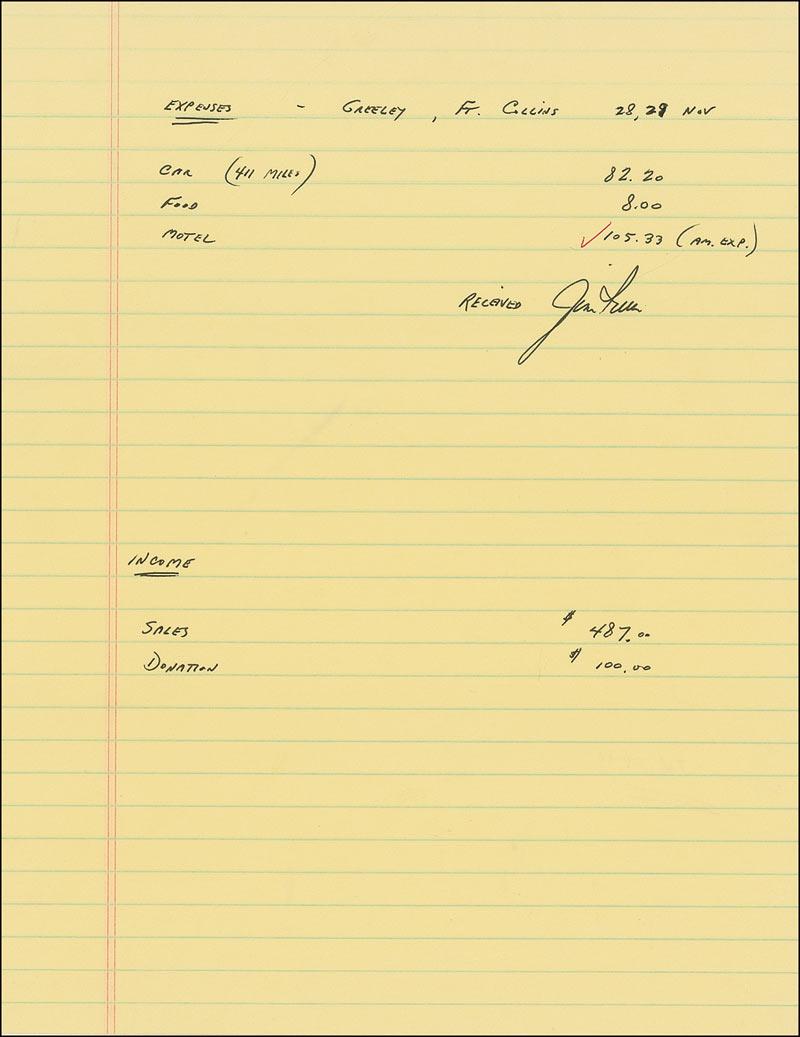 EXPENSES - GREELEY, FT. COLLINS 28, 29 NOV
CAR (411 MILES) 82.20
FOOD 8.00
MOTEL ✓105.33 (AM. EXP.)
RECEIVED Jim Irwin
INCOME
SALES $ 487.00
DONATION $ 100.00